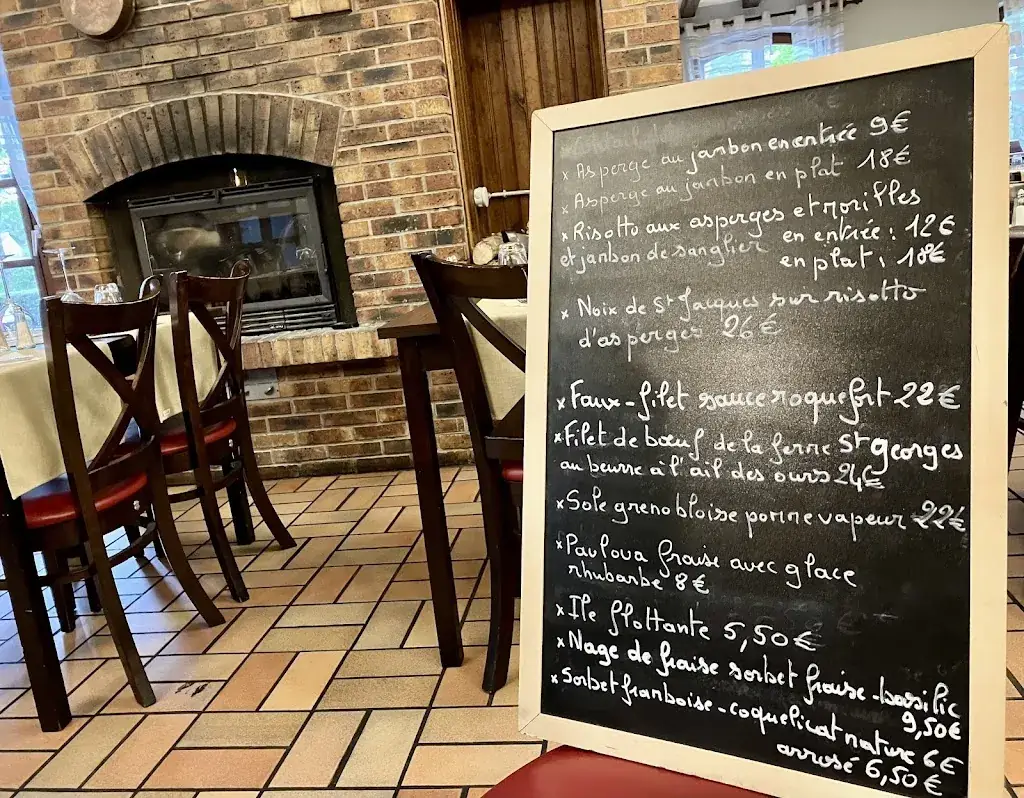 x Asperge au jambon en entrée 9€
x Asperge au jambon en plat 18€
x Risotto aux asperges et morilles
et jambon de sanglier en entrée : 12€
en plat : 18€
x Noix de St Jacques sur risotto
d'asperges 26€
x Faux-filet sauce roquefort 22€
x Filet de bœuf de la ferme St georges
au beurre à l'ail des ours 24€
x Sole grenobloise pomme vapeur 22€
x Pavlova fraise avec glace
rhubarbe 8€
x Ile flottante 5,50€
x Nage de fraise sorbet fraise-basilic
9,50€
x Sorbet framboise-coquelicot nature 6€
arrosé 6,50€